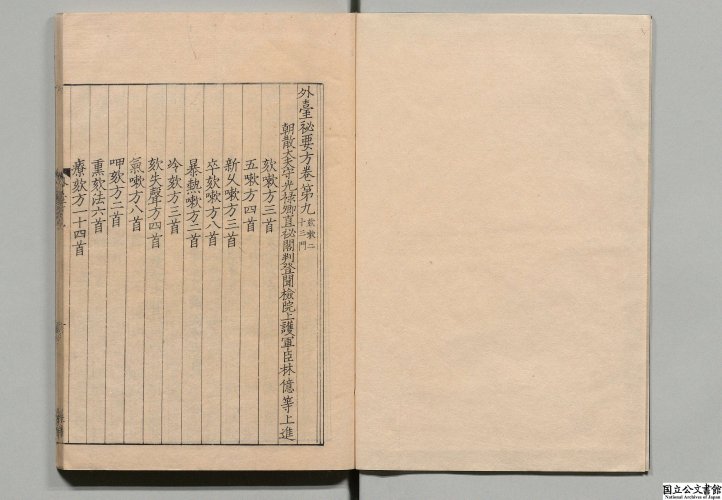 外臺祕要方卷第九 欬嗽二十三門
朝散大夫守光祿卿直祕閣判登聞檢院上護軍臣林億等上進
欬嗽方三首
五嗽方四首
新久嗽方三首
卒欬嗽方八首
暴熱嗽方二首
冷欬方三首
欬失聲方四首
氣嗽方八首
呷欬方二首
熏欬法六首
療欬方一十四首
国立公文書館
National Archives of Japan